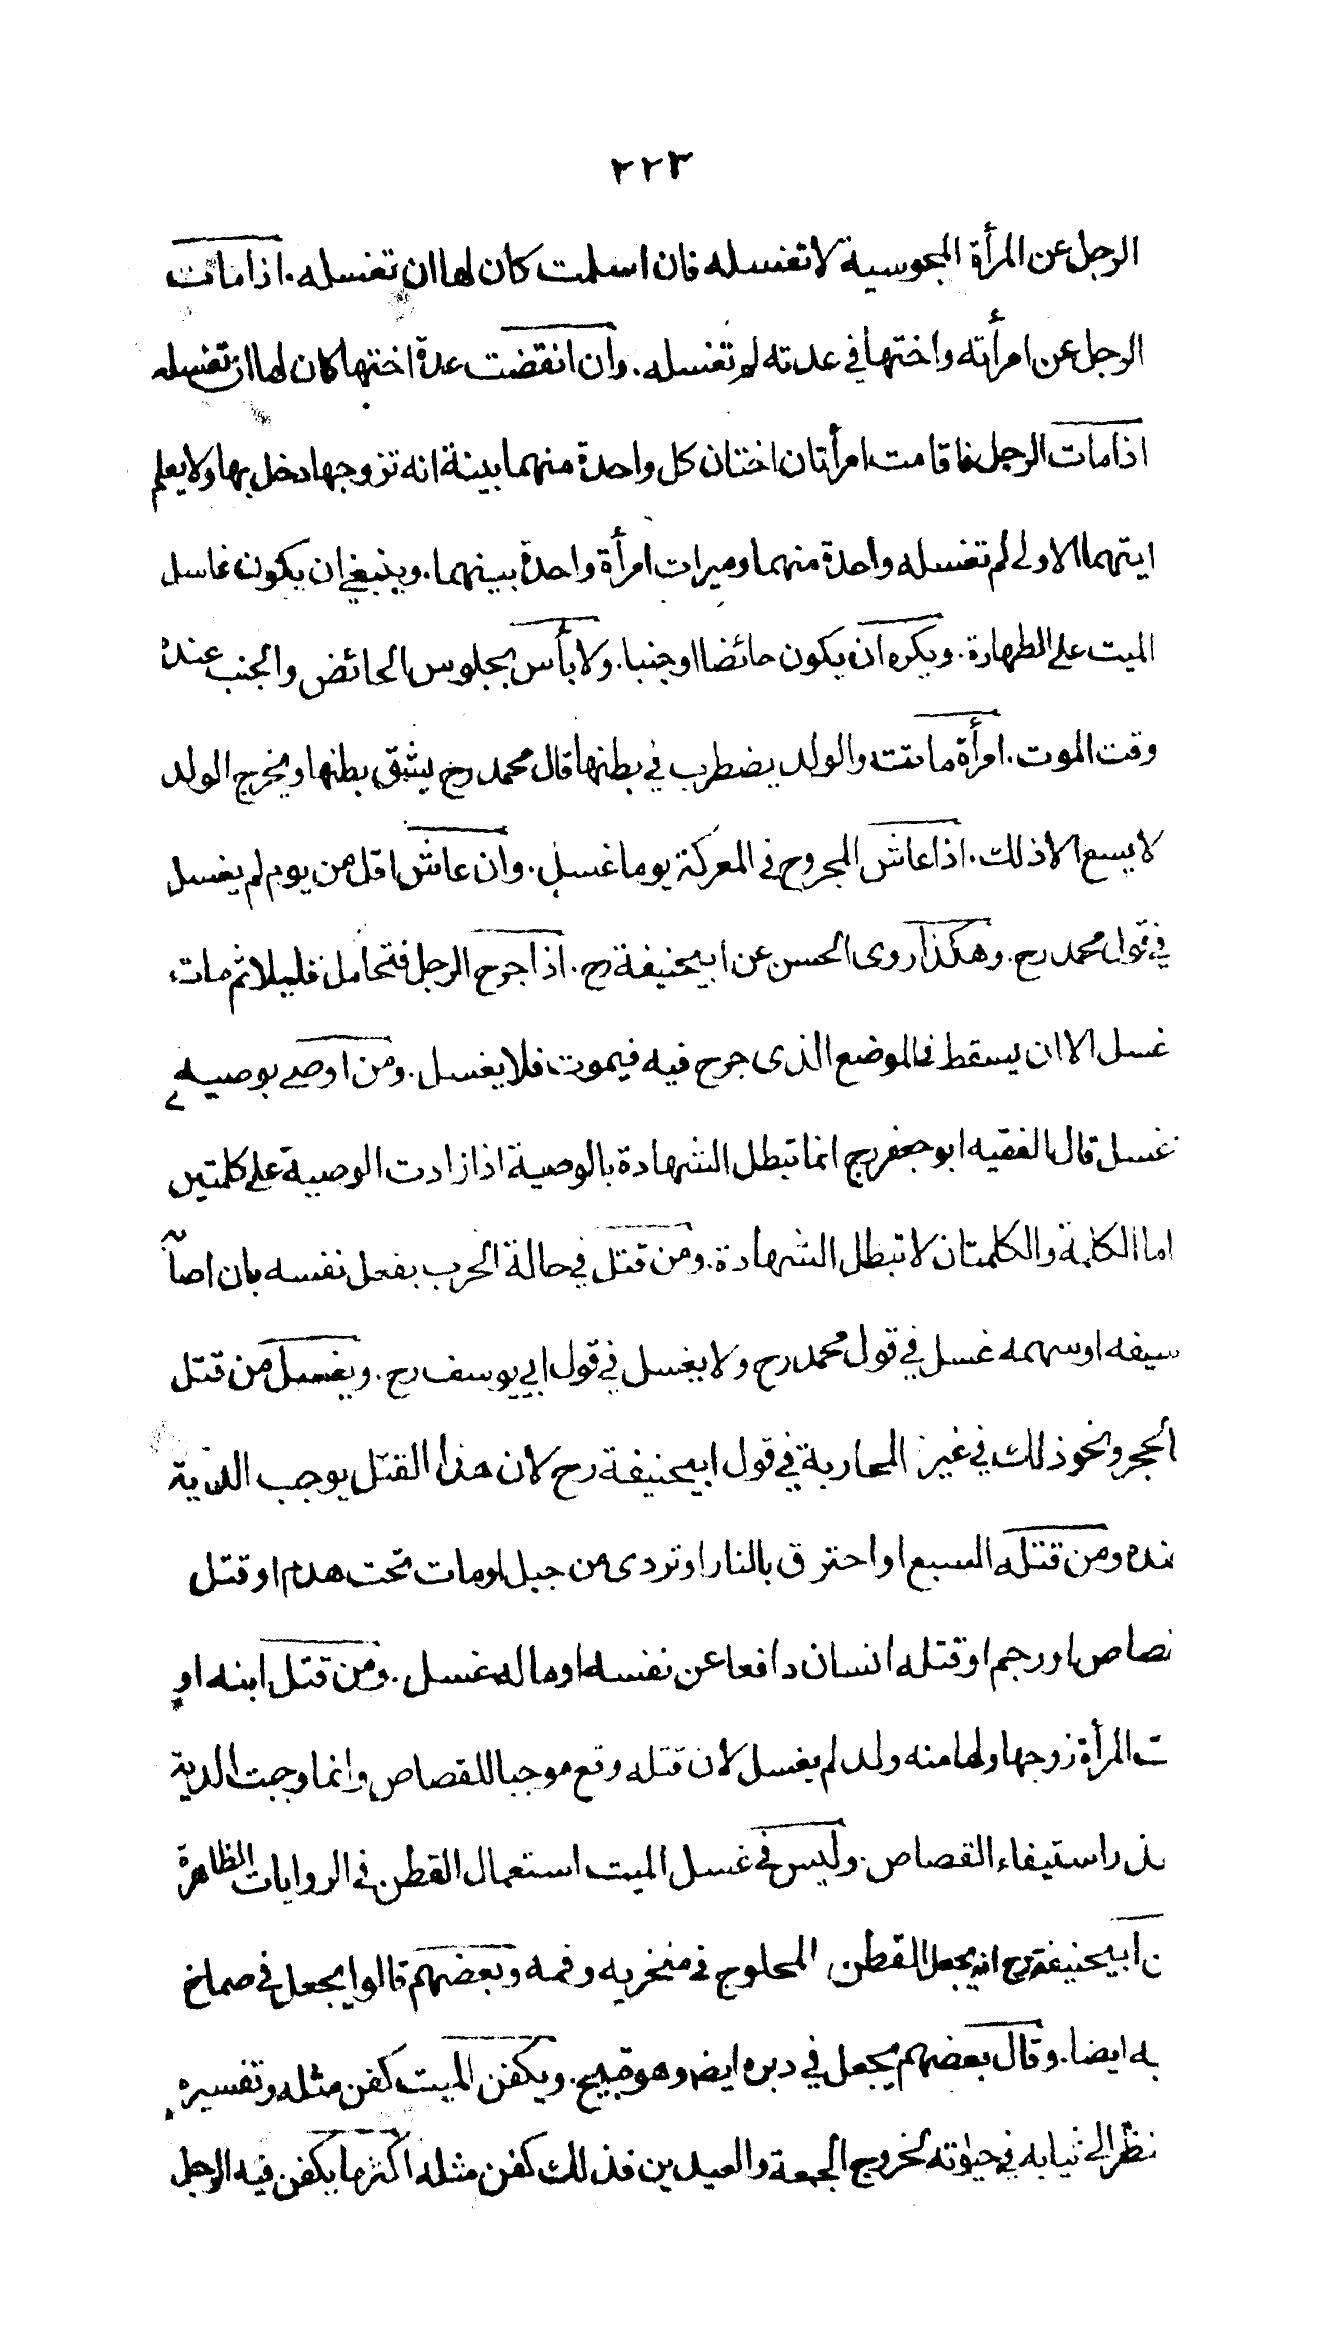 ٢٢٣
الرجل عن المرأة المجوسية لا تغسله فان اسلمت كان لها ان تغسله . اذا مات
الرجل عن امرأته واختها في عدته لم تغسله . وان انقضت عدة اختها كان لها ان تغسله
اذا مات الرجل فاقامت امرأتان اختان كل واحدة منهما بينة انه تزوجها دخل بها ولا يعلم
ايتهما الاولى لم تغسله واحدة منهما وميراث امرأة واحدة بينهما . وينبغي ان يكون غاسل
الميت على الطهارة . ويكره ان يكون حائضا او جنبا . ولا بأس بجلوس الحائض والجنب عنده
وقت الموت . امرأة ماتت والولد يضطرب في بطنها قال محمد رح يشق بطنها ويخرج الولد
لا يسع الا ذلك . اذا عاش المجروح في المعركة يوما غسل . وان عاش اقل من يوم لم يغسل
في قول محمد رح . وهكذا روى الحسن عن ابيحنيفة رح . اذا جرح الرجل فتحامل قليلا ثم مات
غسل الا ان يسقط في الموضع الذى جرح فيه فيموت فلا يغسل . ومن اوصى بوصية
غسل قال الفقيه ابو جعفر رح انما تبطل الشهادة بالوصية اذا زادت الوصية على كلمتين
اما الكلمة والكلمتان لا تبطل الشهادة . ومن قتل في حالة الحرب بفعل نفسه بان اصا
سيفه او سهمه غسل في قول محمد رح ولا يغسل في قول ابي يوسف رح . ويغسل من قتل
الحجر ونحو ذلك في غير المحاربة في قول ابيحنيفة رح لان هذا القتل يوجب الدية
نده ومن قتله السبع او احترق بالنار او تردى من جبل او مات تحت هدم او قتل
صاص او رجم او قتله انسان دافعا عن نفسه او ماله غسل . ومن قتل ابنه او
ت المرأة زوجها ولها منه ولد لم يغسل لان قتله وقع موجبا للقصاص وانما وجبت الدية
ذر استيفاء القصاص . وليس في غسل الميت استعمال القطن في الروايات الظاهرة
ن ابيحنيفة رح انه يجعل القطن المحلوج في منخريه وفمه وبعضهم قالوا يجعل في صماخ
يه ايضا . وقال بعضهم يجعل في دبره ايض وهو قبيح . ويكفن الميت كفن مثله وتفسيره
نظر الى ثيابه في حيوته لخروج الجمعة والعيدين فذلك كفن مثله اكثر ما يكفن فيه الرجل